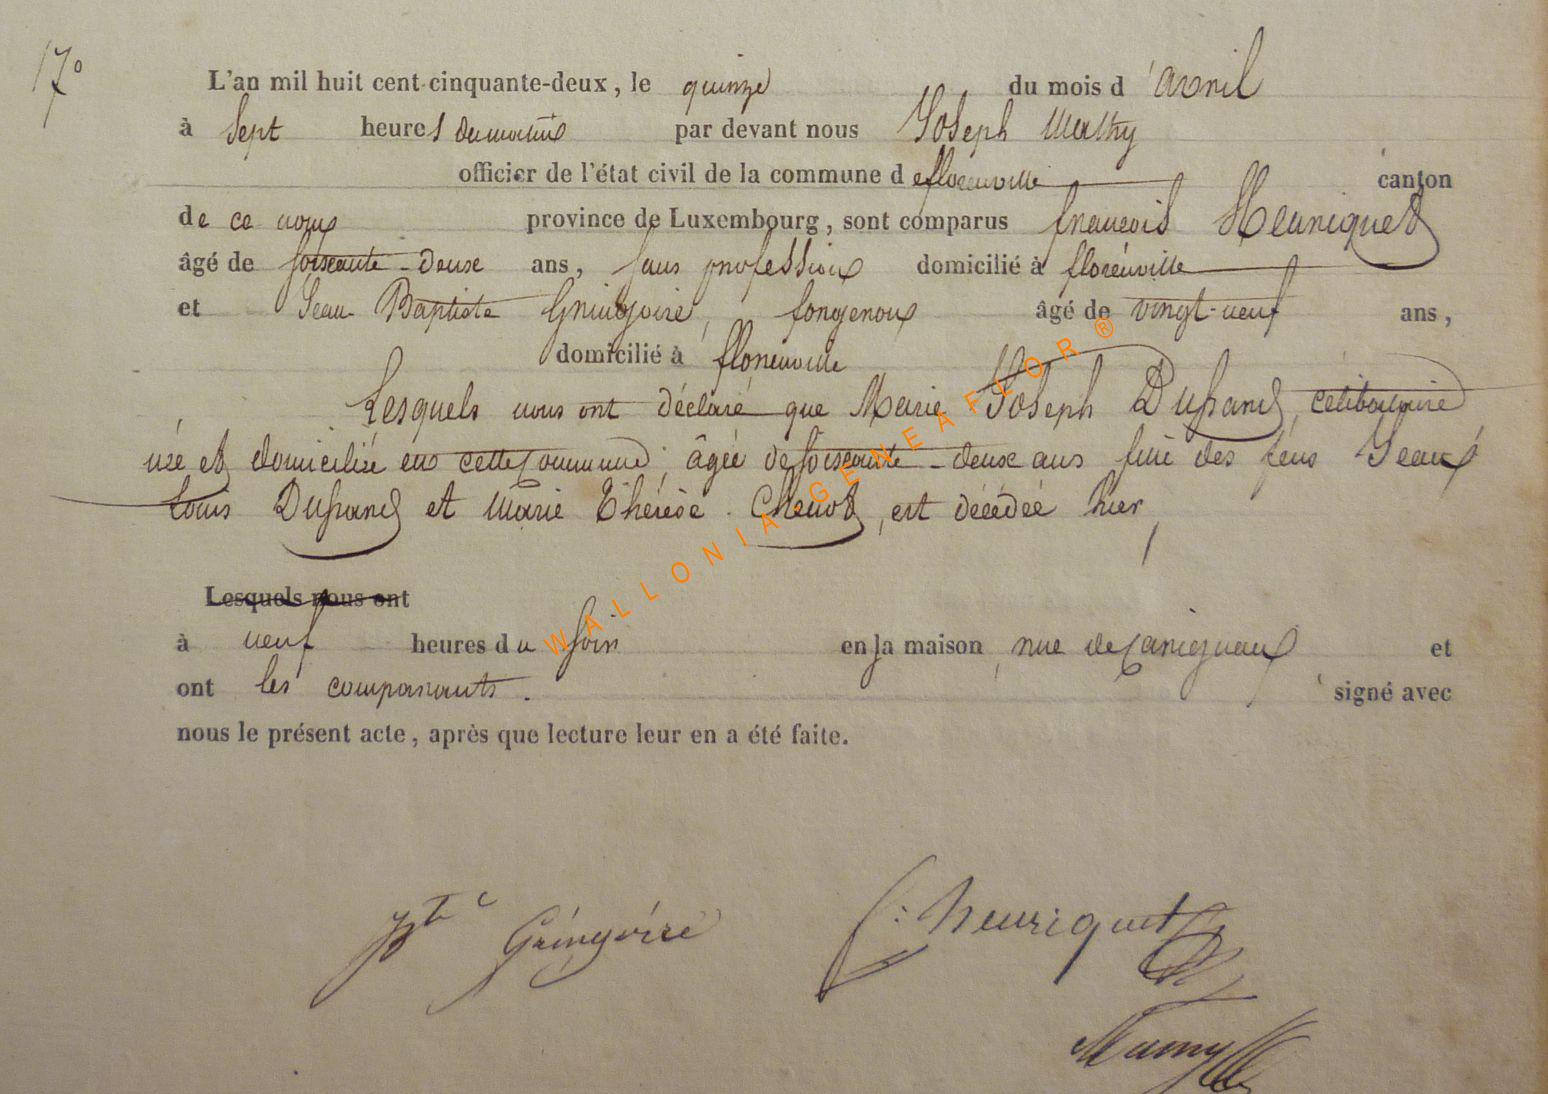 17°
L'an mil huit cent cinquante-deux, le quinze du mois d'avril
à sept heures du matin par devant nous Joseph Mathy
officier de l'état civil de la commune de florenville canton
de ce nom province de Luxembourg, sont comparus françois Henriquet
âgé de soixante-deux ans, sans profession domicilié à florenville
et Jean Baptiste Gringoire, forgeron âgé de vingt-neuf ans,
domicilié à florenville
Lesquels nous ont déclaré que Marie Joseph Dufrand, célibataire
née et domiciliée en cette commune, âgée de soixante-deux ans fille des feus Jean
Louis Dufrand et Marie Thérèse Chenot, est décédée hier,
Lesquels nous ont
à neuf heures du soir en sa maison, rue de et
ont les comparants. signé avec
nous le présent acte, après que lecture leur en a été faite.
Bte Gringoire f: henriquet
WALLONIA-GENEAFLOR®